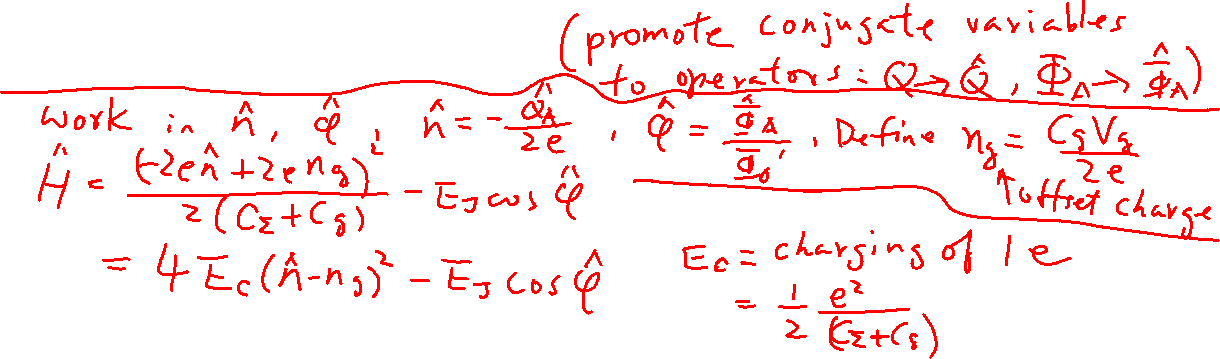 (promote conjugate variables
to operators: Q → Q̂, Φ_A → Φ̂_A)
work in n̂, φ̂, n̂ = -Q̂_A/2e, φ̂ = Φ̂_A/Φ₀', Define n_g = C_g V_g/2e
↑ offset charge
Ĥ = (-2en̂ + 2e n_g)²/2(C_Σ + C_g) - E_J cos φ̂
= 4E_c(n̂ - n_g)² - E_J cos φ̂
E_c = charging of 1e
= 1/2 e²/(C_Σ + C_g)